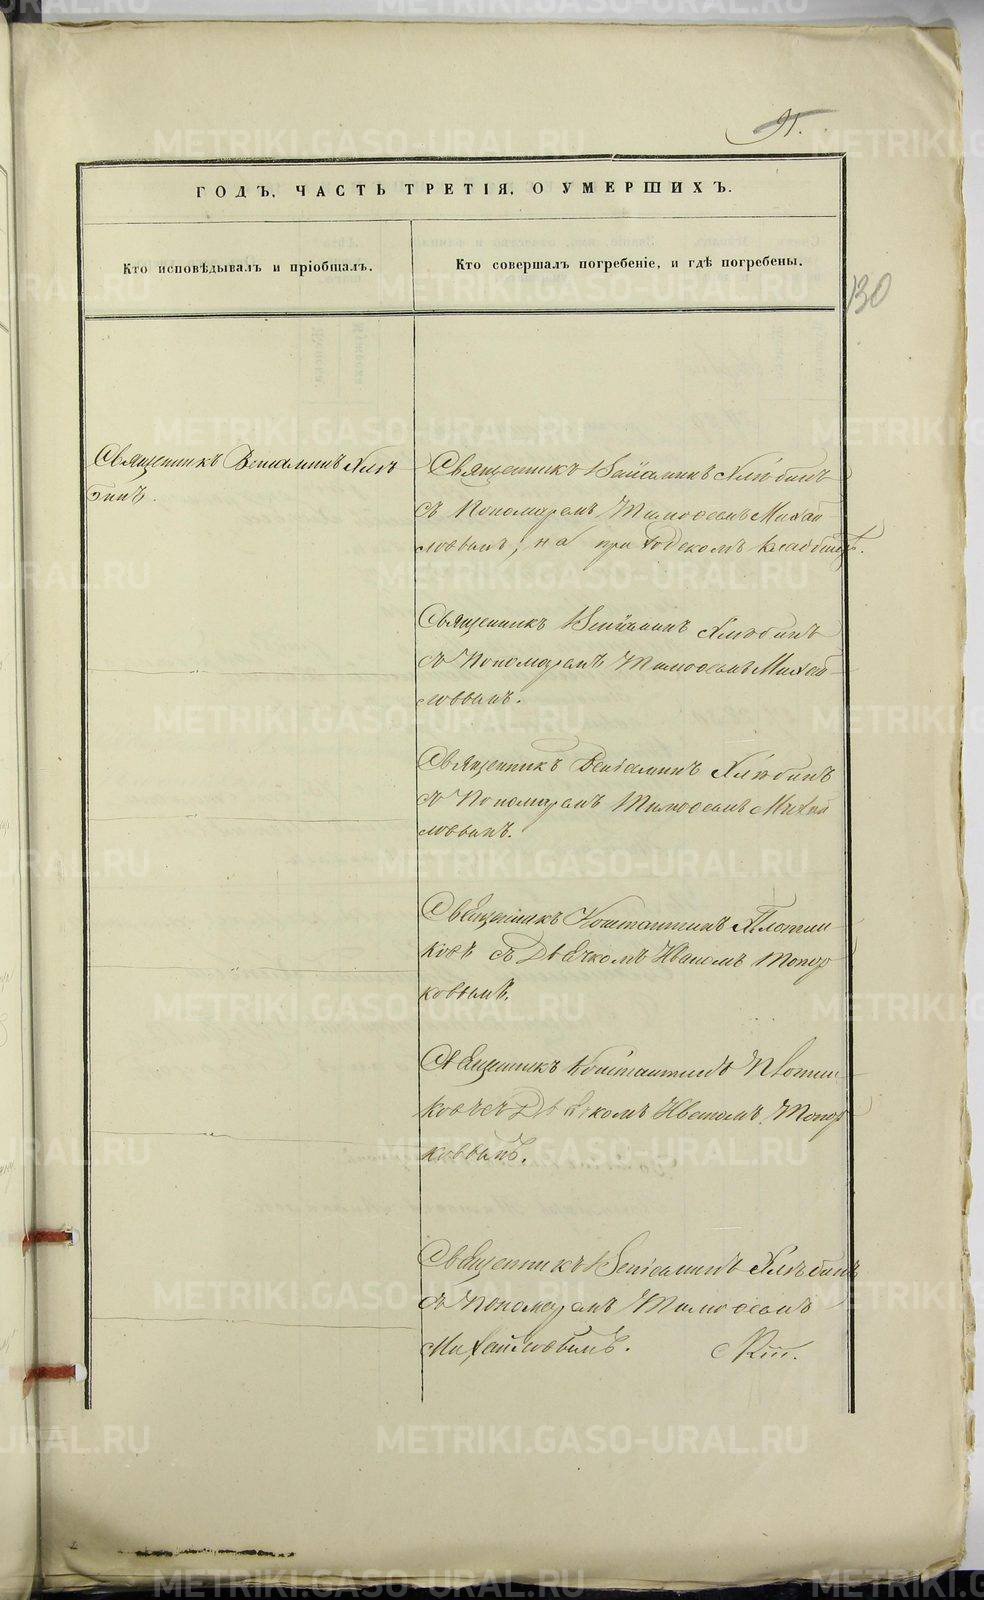 91.
ГОДЪ, ЧАСТЬ ТРЕТІЯ, О УМЕРШИХЪ.
Кто исповѣдывалъ и пріобщалъ.
Кто совершалъ погребеніе, и гдѣ погребены.
130
Священникъ Веніаминъ Хлѣ
бинъ.
Священникъ Веніаминъ Хлѣбинъ
съ Пономаремъ Тимофеемъ Михай
ловымъ, на приходскомъ кладбищѣ.
Священникъ Веніаминъ Хлѣбинъ
съ Пономаремъ Тимофеемъ Михай
ловымъ.
Священникъ Веніаминъ Хлѣбинъ
съ Пономаремъ Тимофеемъ Михай
ловымъ.
Священникъ Константинъ Плотни
ковъ съ Дьячкомъ Иваномъ Топор
ковымъ.
Священникъ Константинъ Плотни
ковъ съ Дьячкомъ Иваномъ Топор
ковымъ.
Священникъ Веніаминъ Хлѣбинъ
съ Пономаремъ Тимофеемъ
Михайловымъ.
METRIKI.GASO-URAL.RU